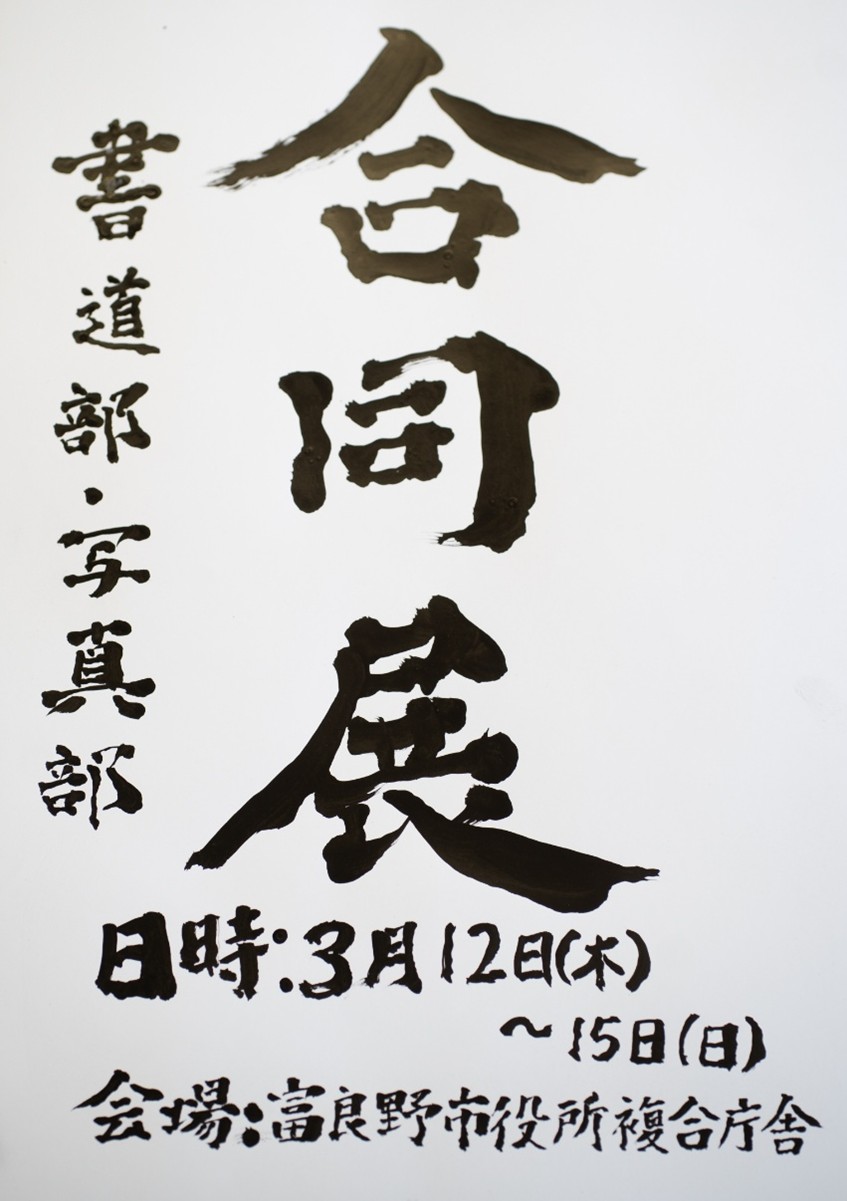 合同展
書道部・写真部
日時:3月12日(木)
～15日(日)
会場:富良野市役所複合庁舎